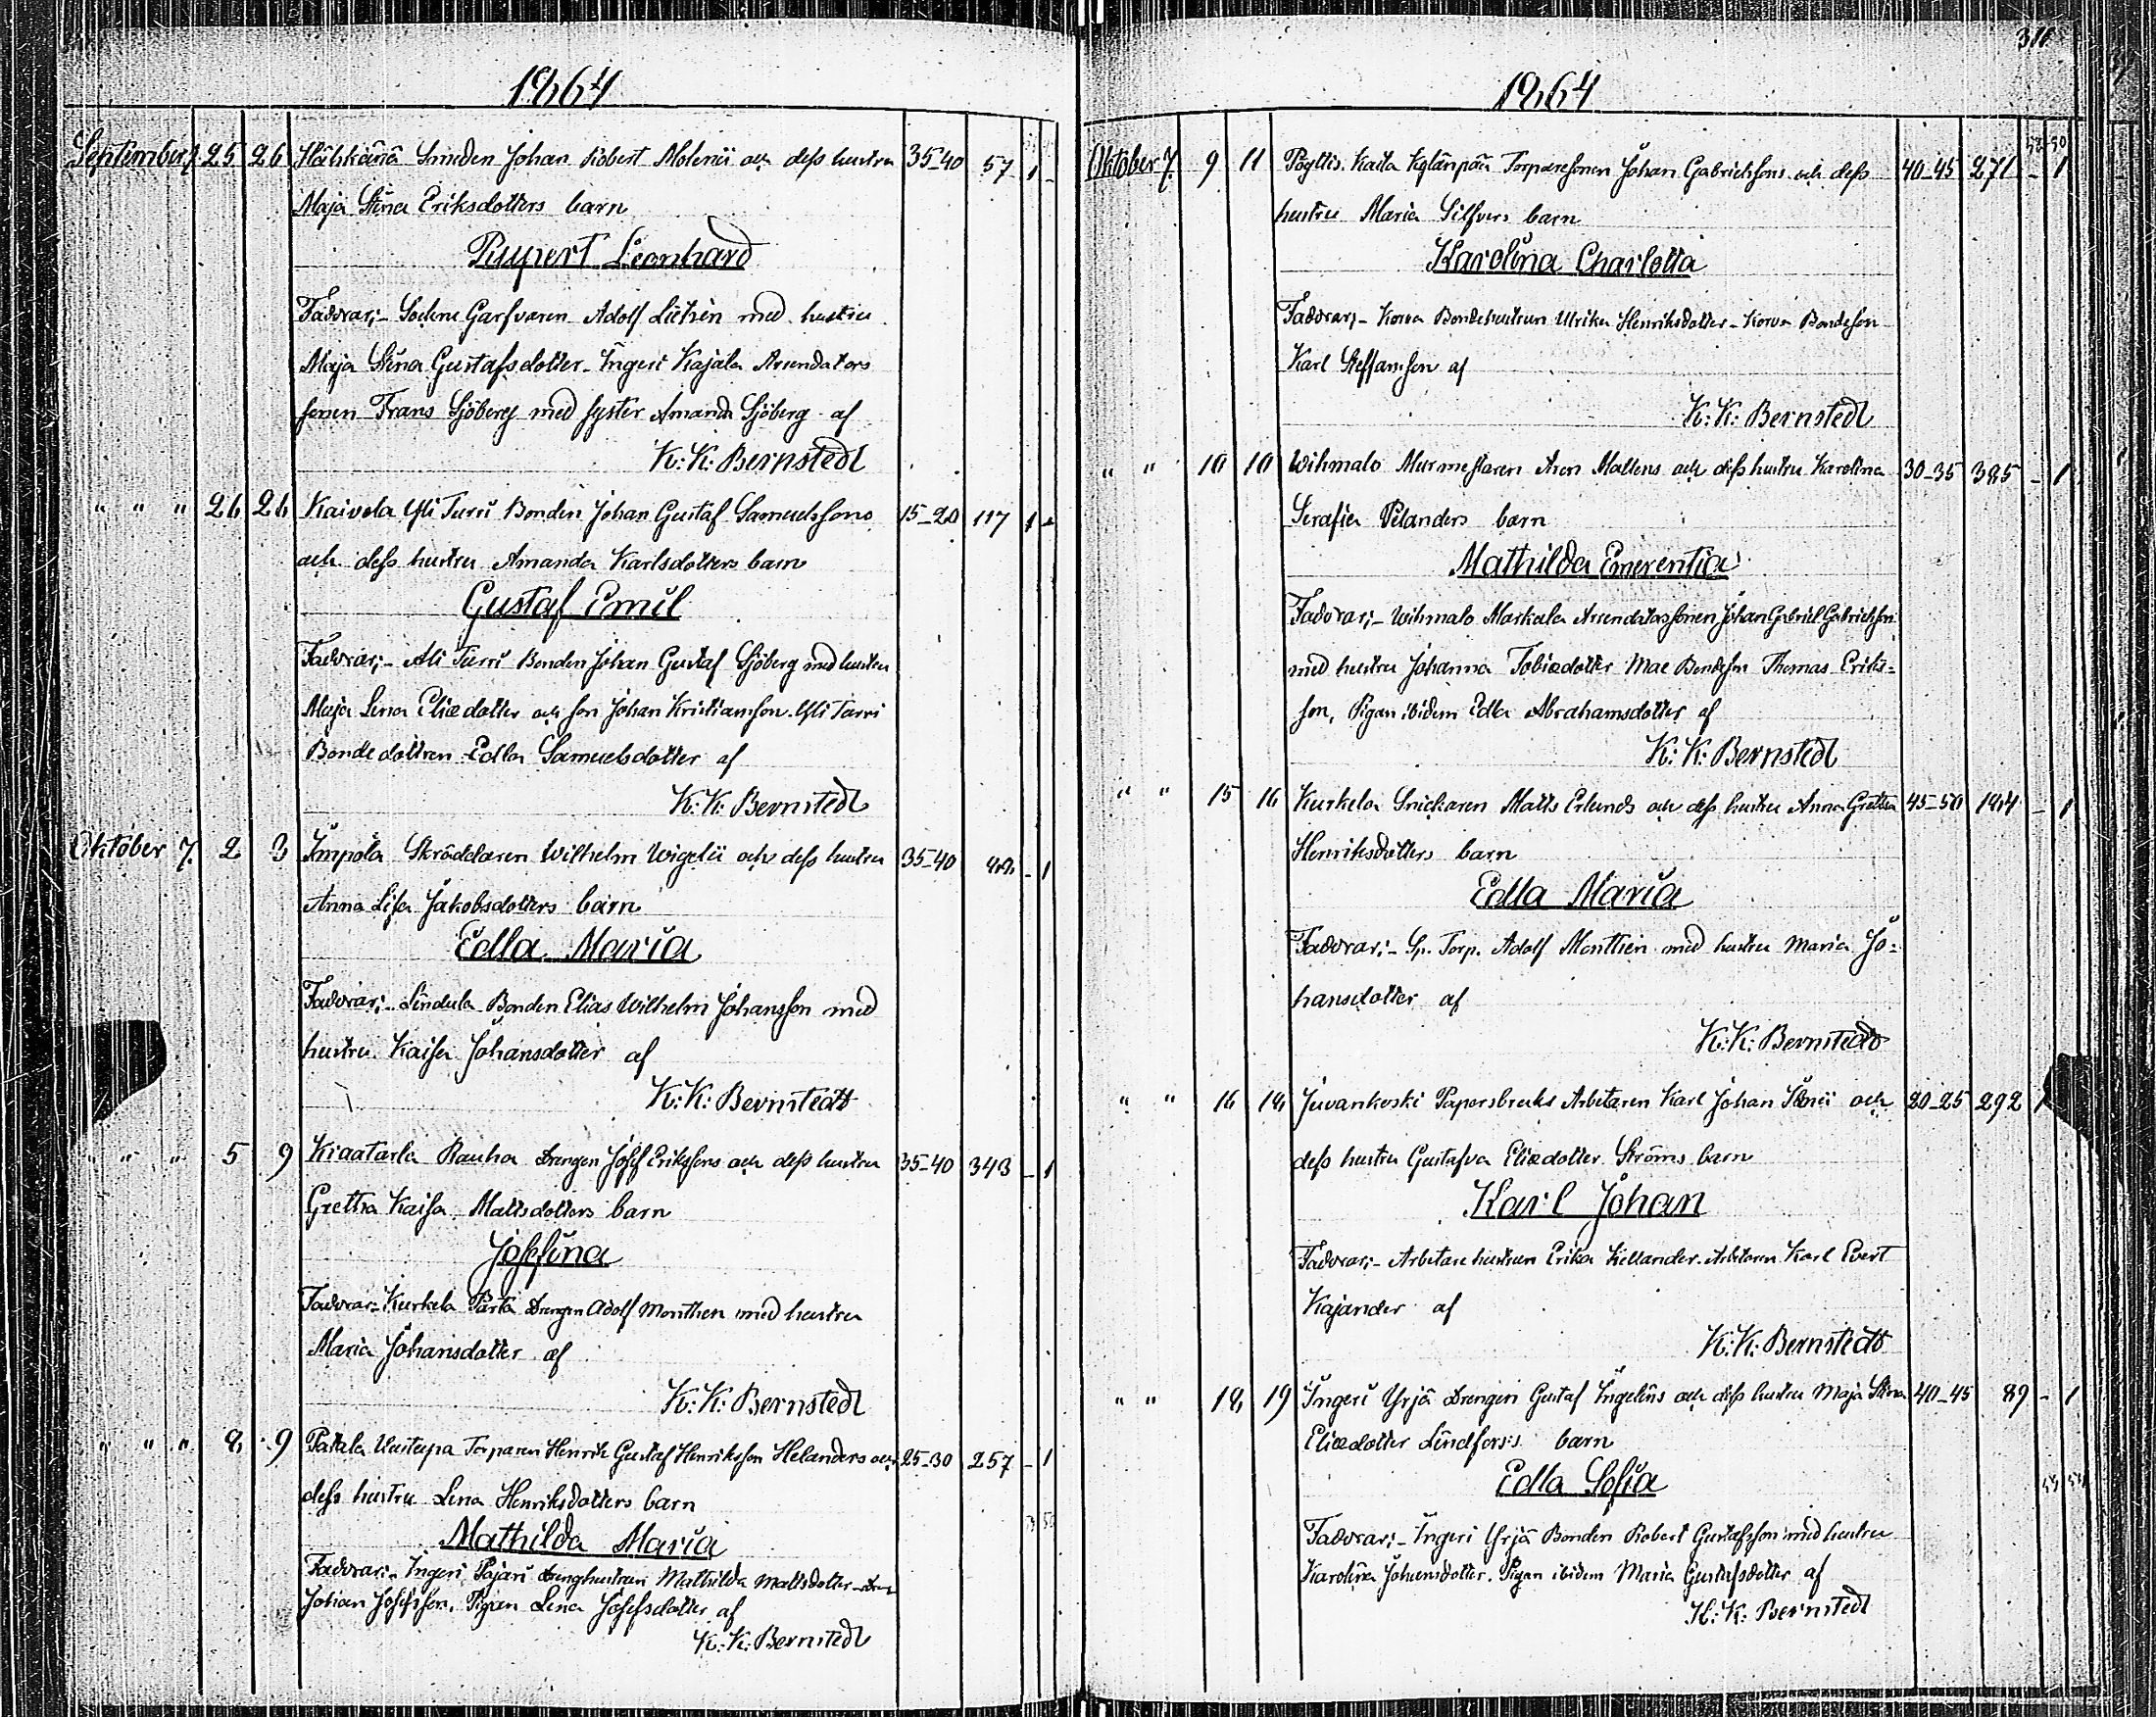 1864
September 7. 25 26 Hälskänä Smeden Johan Robert Molenii och dess hustru 35-40 57 1 -
Maja Stina Eriksdotters barn
Rupert Leonhard
Faddrar;- Garfvaren Adolf med hustru
Maja Stina Gustafsdotter - Ingeri Kajala Arrendators
sonen Frans Sjöberg med syster Amanda Sjöberg af
K: K: Bernstedt
" " " 26 26 Kaivola Yli Turri Bonden Johan Gustaf Samuelssons 15-20 117 1 -
och dess hustru Amanda Karlsdotters barn
Gustaf Emil
Faddrar;- Ali Turri Bonden Johan Gustaf Sjöberg med hustru
Maja Lena Eliædotter och son Johan Kristiansson. Yli Tarri
Bondedottren Edla Samuelsdotter af
K: K: Bernstedt
Oktober 7. 2 3 Impola Skräddaren Wilhelm Wigelii och dess hustru 35-40 - 1
Anna Lisa Jakobsdotters barn
Edla Maria
Faddrar;- Lindula Bonden Elias Wilhelm Johansson med
hustru Kaisa Johansdotter af
K: K: Bernstedt
" " " 5 9 Kraatarla Rauha Drengen Josef Erikssons och dess hustru 35-40 343 - 1
Gretha Kaisa Mattsdotters barn
Josefina
Faddrar;- Kurkela Parta Drengen Adolf Monthen med hustru
Maria Johansdotter af
K: K: Bernstedt
" " " 8 9 Patala Uusitupa Torparen Henrik Gustaf Henriksson Helanders och 25-30 257 - 1
dess hustru Lena Henriksdotters barn
Mathilda Maria
Faddrar;- Ingeri Pajari drenghustrun Mathilda Mattsdotter -
Johan Josefsson, Pigan Lena Josefsdotter af
K: K: Bernstedt
1864
Oktober 7. 9 11 Pöyttis. Kaila Torparesonen Johan Gabrielssons och dess 40-45 271 - 1
hustru Maria Silfvers barn
Karolina Charlotta
Faddrar;- Korva Bondehustrun Ulrika Henriksdotter - Korva Bondeson
Karl Steffansson af
K: K: Bernstedt
" " 10 10 Wihmalo Murmestaren Aron Mallens och dess hustru Karolina 30-35 385 - 1
Serafia Pelanders barn
Mathilda Emerentia
Faddrar;- Wihmalo Markala Arrendatorssonen Johan Gabriel Gabrielsson
med hustru Johanna Tobiædotter Mae Bondeson Thomas Eriks=
son, Pigan ibidem Edla Abrahamsdotter af
K: K: Bernstedt
" " 15 16 Kurkela Snickaren Matts Erlunds och dess hustru Anna Gretha 45-50 184 - 1
Henriksdotters barn
Edla Maria
Faddrar;- Sp. Torp. Adolf Monthen med hustru Maria Jo=
hansdotter af
K: K: Bernstedt
" " 16 18 Juvankoski Papersbruks Arbetaren Karl Johan och 20-25 292 1
dess hustru Gustafva Eliædotter Ströms barn
Karl Johan
Faddrar;- Arbetare hustrun Erika Kellander. Arbetaren Karl Evert
Kajander af
K: K: Bernstedt
" " 18 19 Ingeri Yrjä Drengen Gustaf Ingelins och dess hustru Maja Stina 40-45 89 - 1
Eliædotter Lindfors:s barn
Edla Sofia
Faddrar;- Ingeri Yrjä Bonden Robert Gustafsson med hustru
Karolina Johansdotter. Pigan ibidem Maria Gustafsdotter af
K: K: Bernstedt